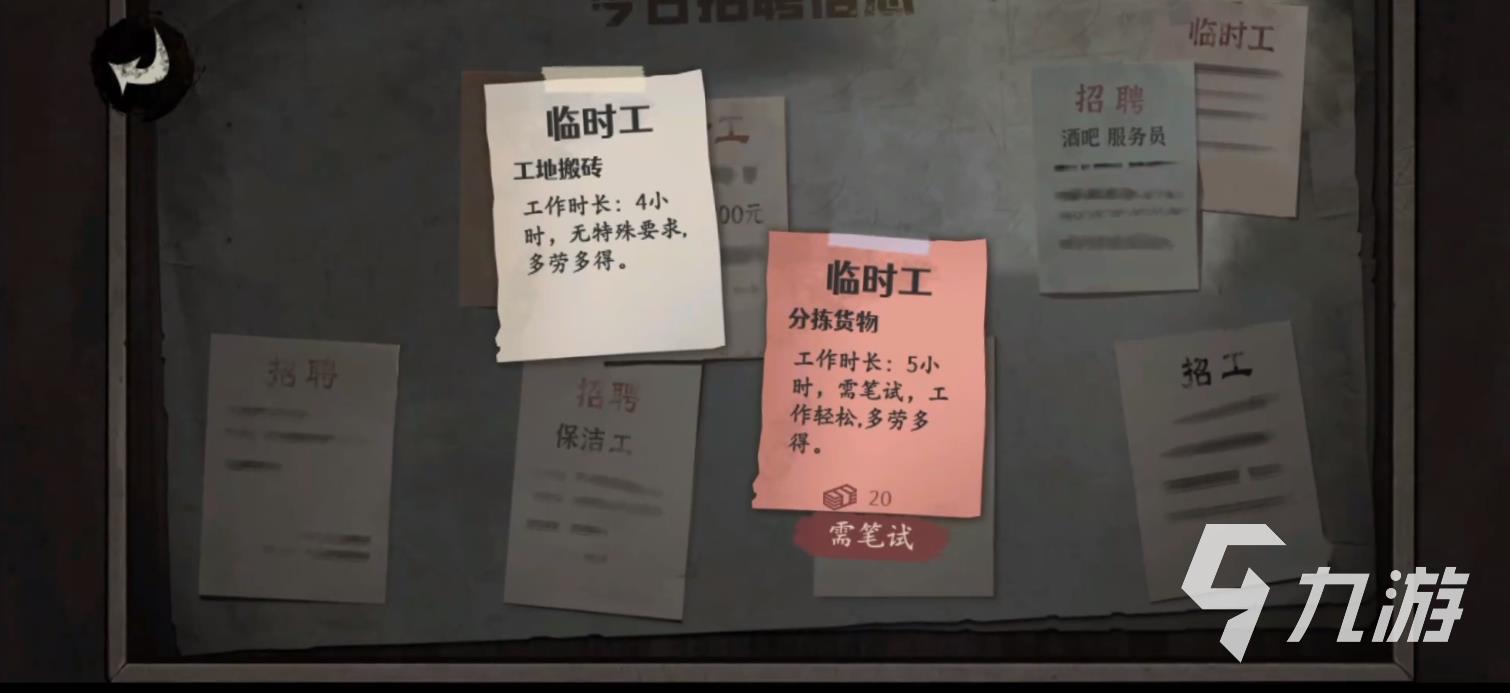 今日招聘信息
临时工
工地搬砖
工作时长：4小
时，无特殊要求,
多劳多得。
工
00元
招聘
酒吧 服务员
临时工
临时工
分拣货物
工作时长：5小
时，需笔试，工
作轻松,多劳多
得。
20
需笔试
招聘
招聘
保洁工
招工
九游